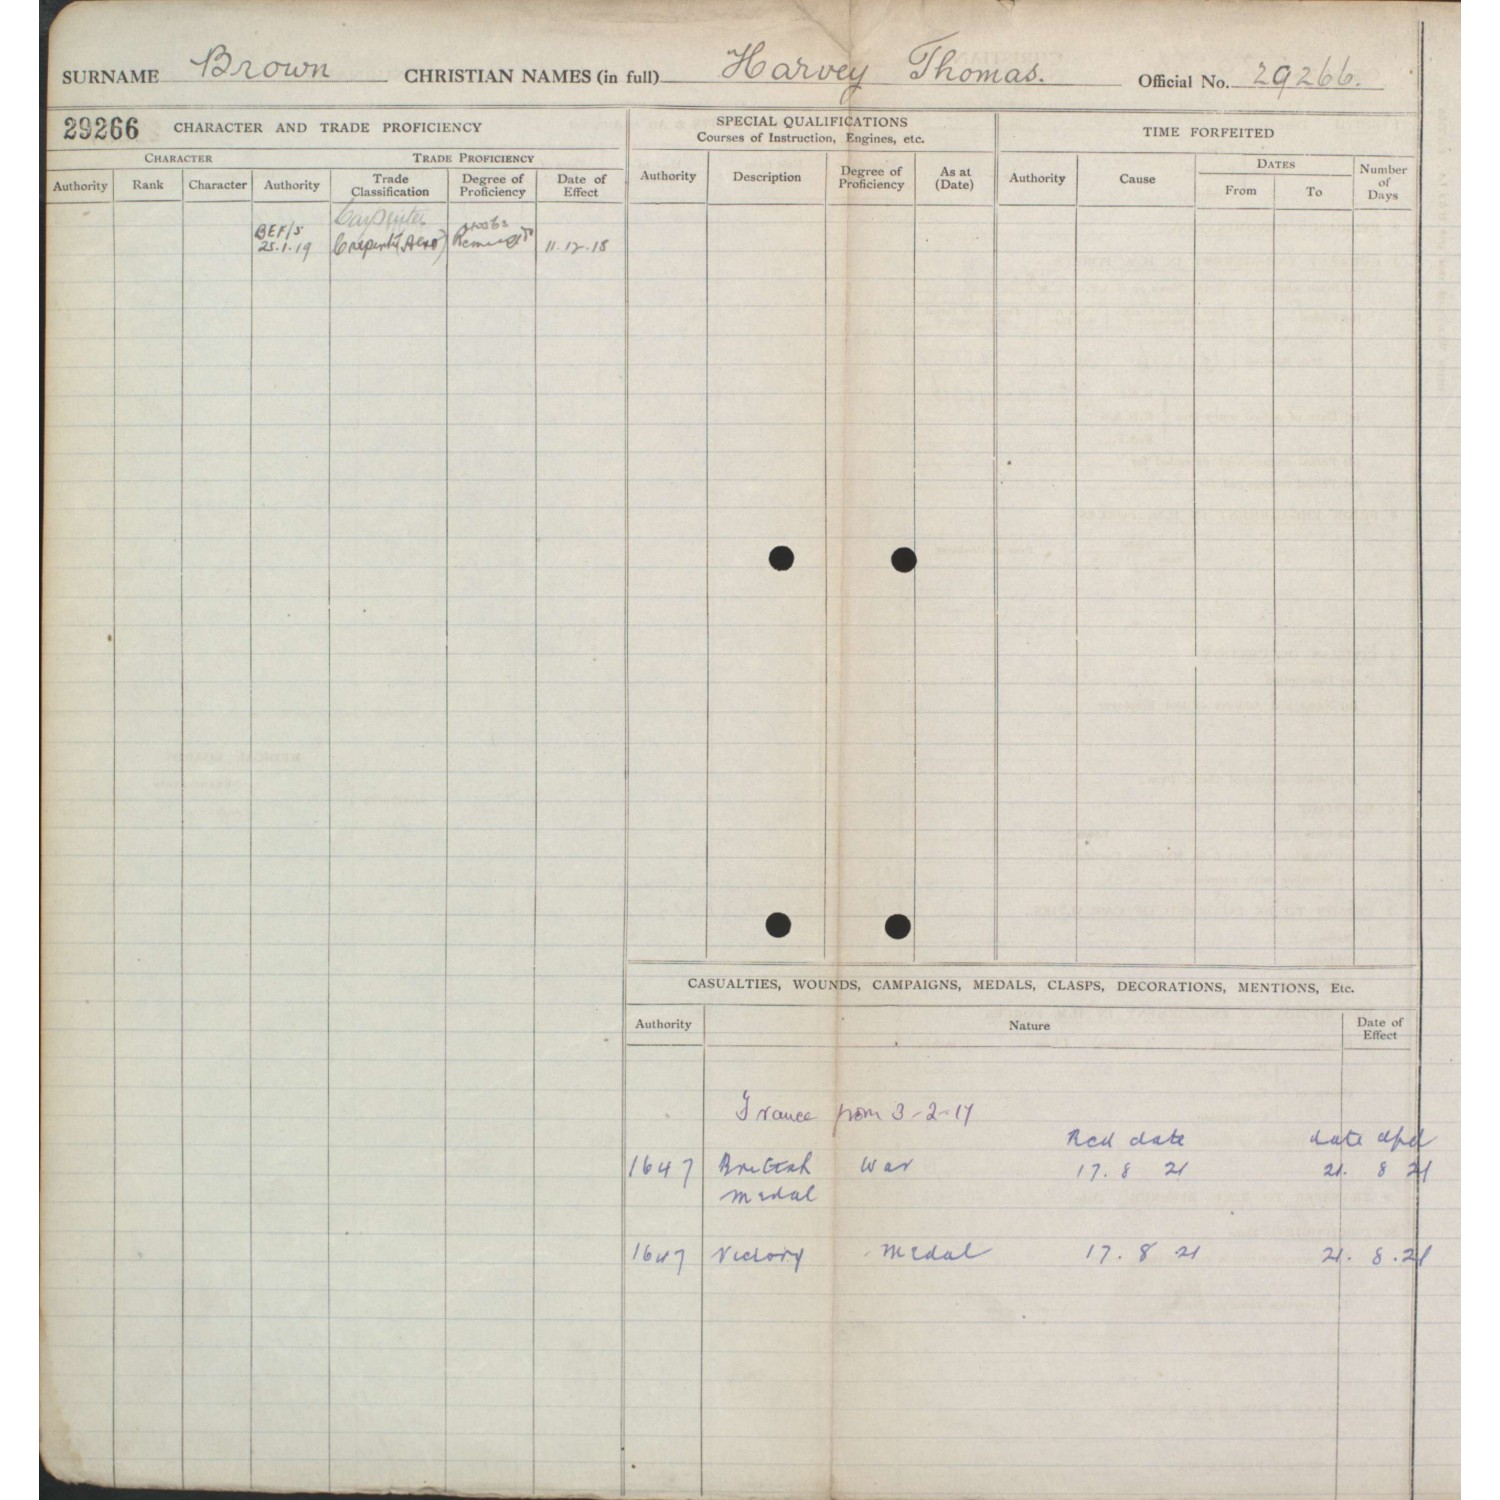 SURNAME Brown CHRISTIAN NAMES (in full) Harvey Thomas. Official No. 29266.
29266 CHARACTER AND TRADE PROFICIENCY
CHARACTER TRADE PROFICIENCY
Authority Rank Character Authority Trade Classification Degree of Proficiency Date of Effect
Carpenter
BEF/5
25.1.19 (Aero) 11.12.18
SPECIAL QUALIFICATIONS
Courses of Instruction, Engines, etc.
Authority Description Degree of Proficiency As at (Date)
TIME FORFEITED
Authority Cause DATES Number of Days
From To
CASUALTIES, WOUNDS, CAMPAIGNS, MEDALS, CLASPS, DECORATIONS, MENTIONS, Etc.
Authority Nature Date of Effect
France from 3-2-17
Recd date date dpd
1647 British War 17. 8 21 21. 8 21
Medal
1647 Victory Medal 17. 8 21 21. 8. 21